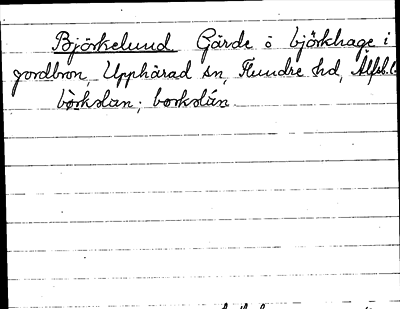 Björkelund Gärde o björkhage i
Jordbron, Upphärad sn, Flundre hd, Älfsb. l.
börkslan; borkslán